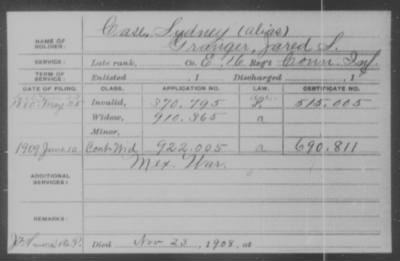 Case, Sydney (alias)
NAME OF SOLDIER: Granger, Jared S.
SERVICE: Late rank, Co. E, 16 Reg't Conn. Inf.
TERM OF SERVICE: Enlisted , 1 Discharged , 1
DATE OF FILING. CLASS. APPLICATION NO. LAW. CERTIFICATE NO.
May Invalid, 370.795 515.005
Widow, 910.365 a
Minor,
1909 June 10 Cont Wid 922.005 a 690.811
ADDITIONAL SERVICES: Mex. War.
REMARKS:
Died Nov 23, 1908, at